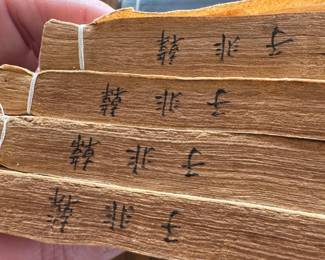 韓非子
韓非子
韓非子
韓非子